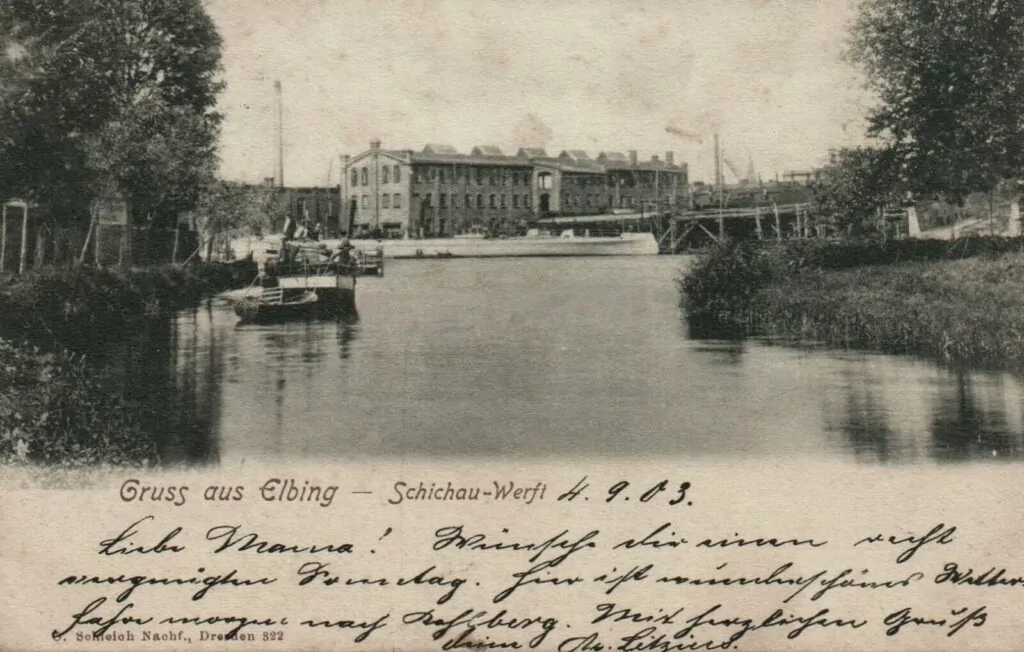 Gruss aus Elbing — Schichau-Werft 4. 9. 03.
Liebe Mama! Wünsche dir einen recht
vergnügten Sonntag. Hier ist wunderschönes Wetter,
fahre morgen nach Kahlberg. Mit herzlichen Gruß
O. Schleich Nachf., Dresden 322
deine